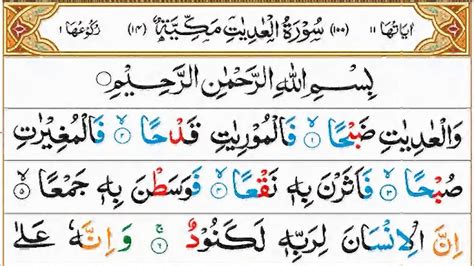 اٰیَاتُهَا ۱۱ (۱۰۰) سُوْرَةُ الْعٰدِیٰتِ مَكِّیَّةٌ (۱۴) رُكُوْعُهَا ۱
بِسْمِ اللّٰهِ الرَّحْمٰنِ الرَّحِیْمِ
وَالْعٰدِیٰتِ ضَبْحًا ۱ فَالْمُوْرِیٰتِ قَدْحًا ۲ فَالْمُغِیْرٰتِ
صُبْحًا ۳ فَاَثَرْنَ بِهٖ نَقْعًا ۴ فَوَسَطْنَ بِهٖ جَمْعًا ۵
اِنَّ الْاِنْسَانَ لِرَبِّهٖ لَكَنُوْدٌ ۶ وَاِنَّهٗ عَلٰی